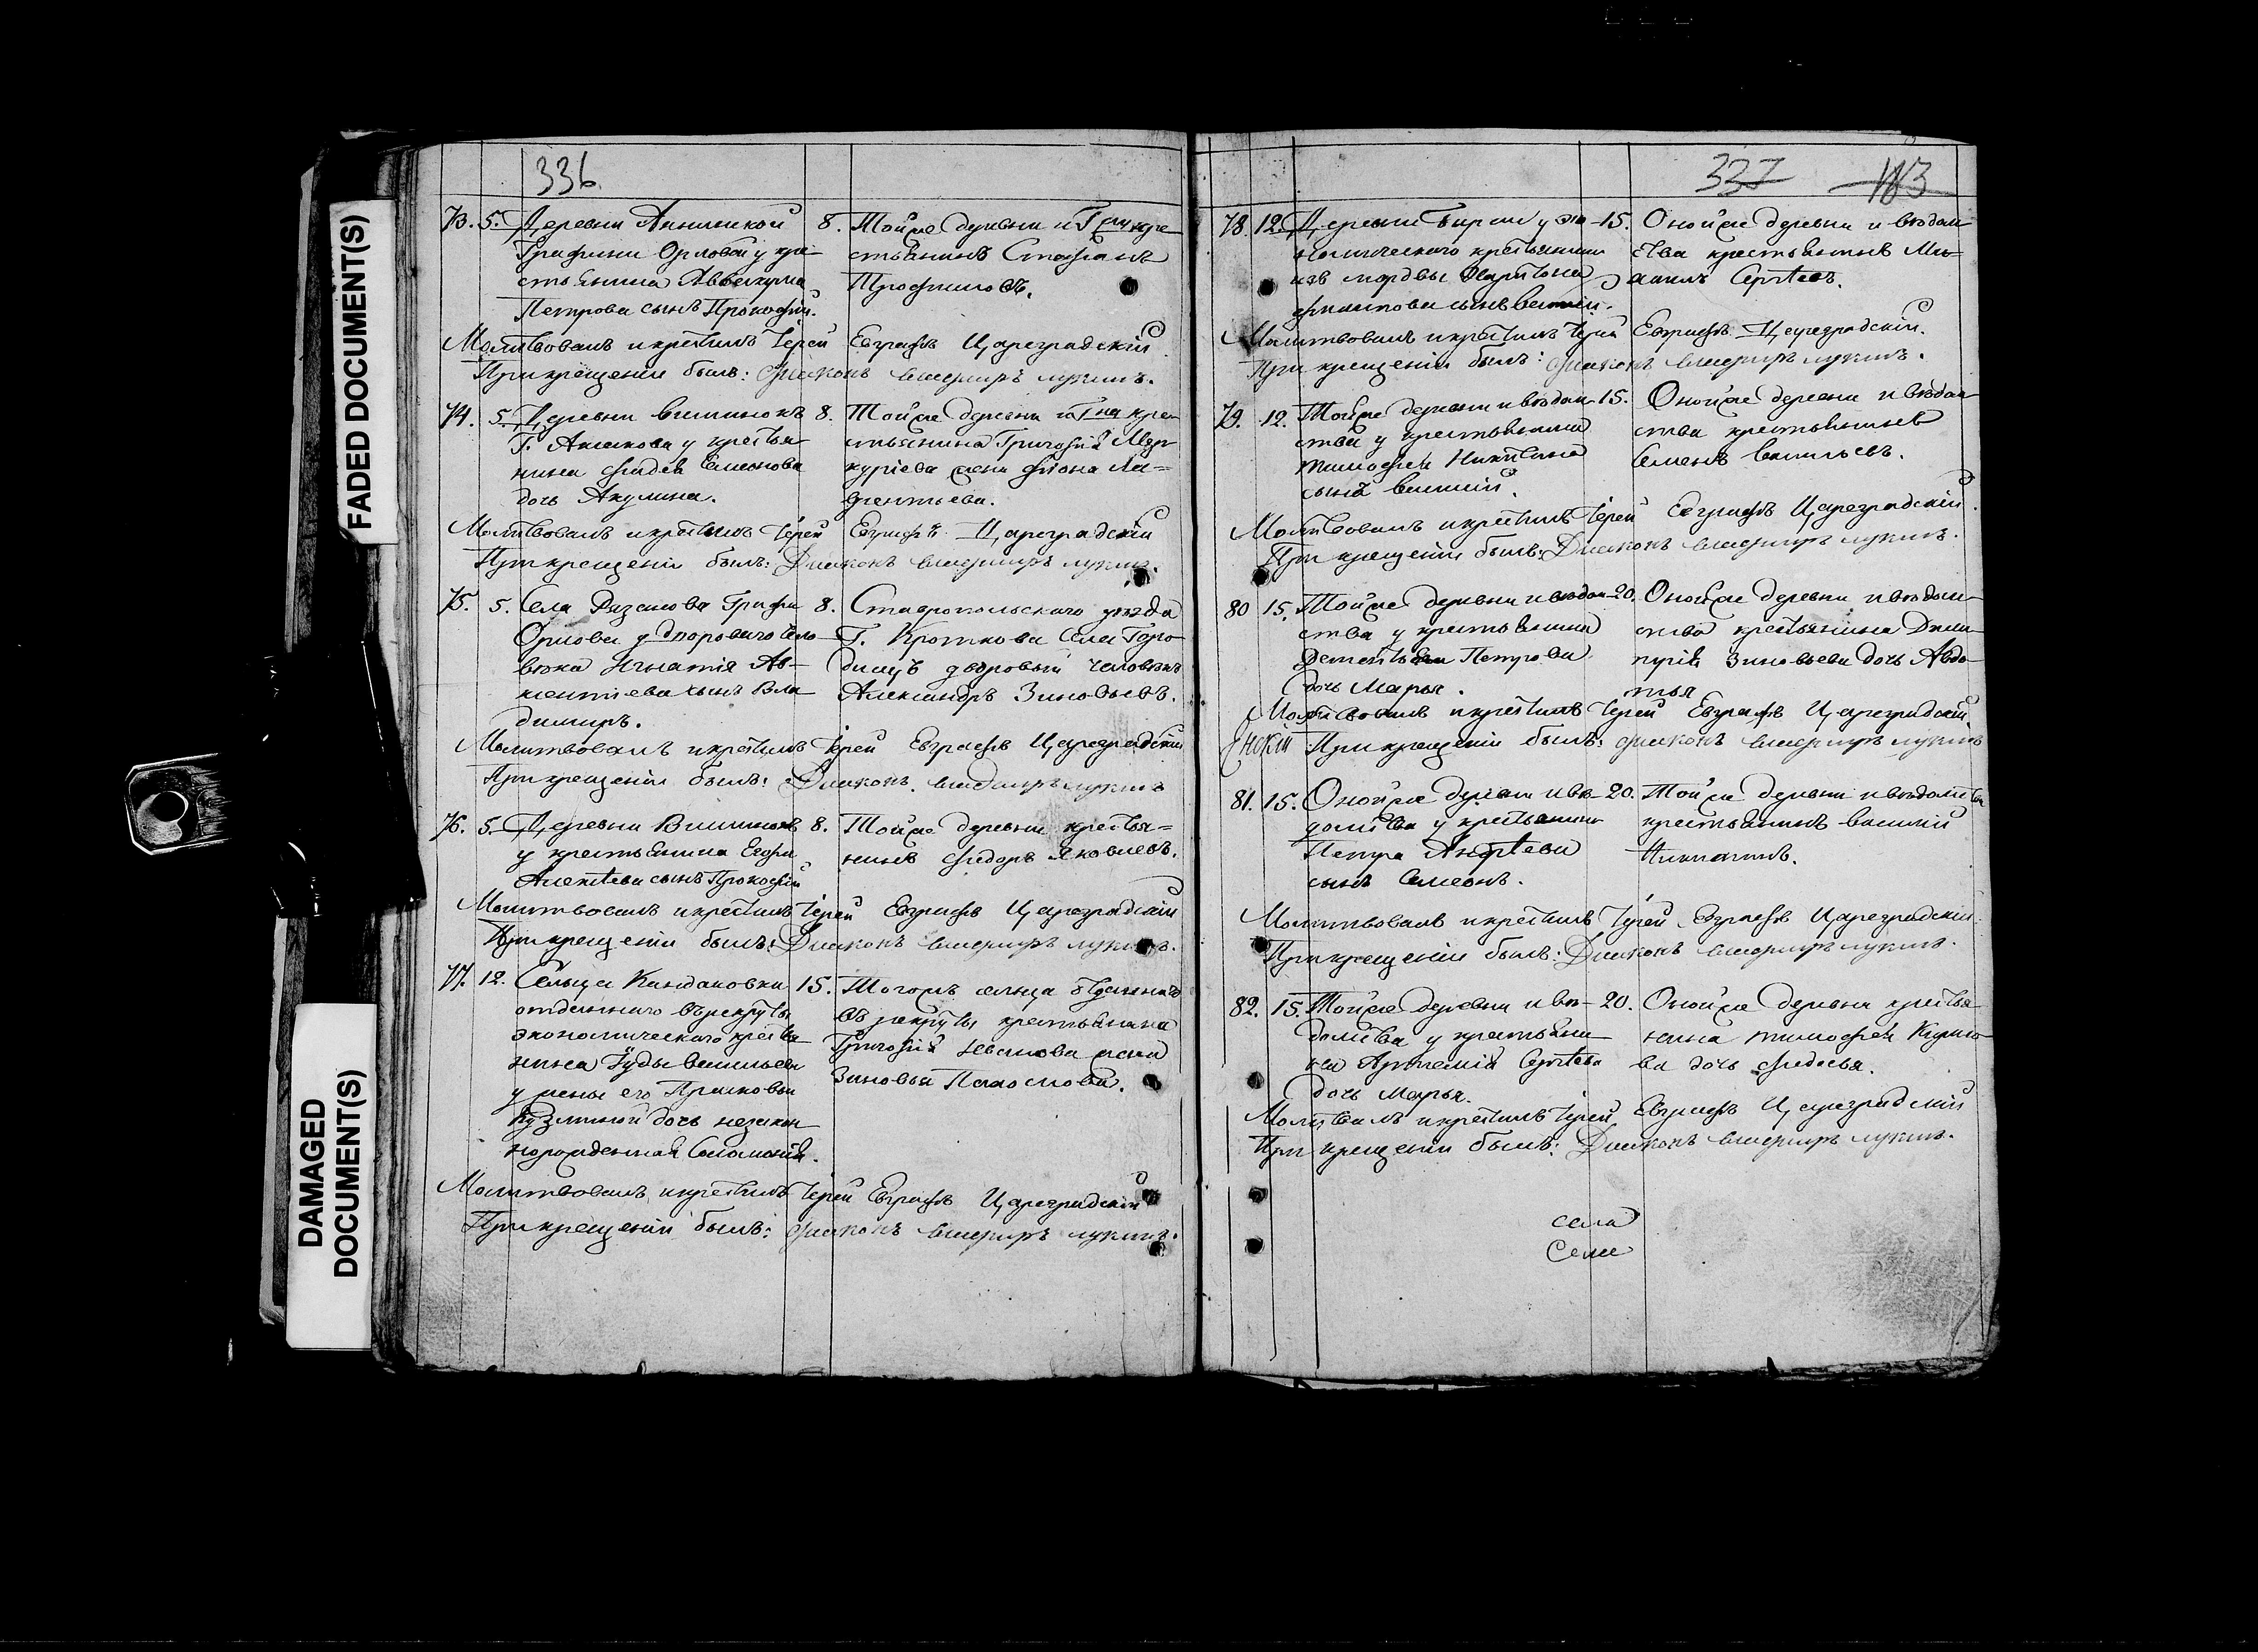 FADED DOCUMENT(S)
DAMAGED
DOCUMENT(S)
336
73. 5. Деревни Аниненкой
Графини Орловой у кре-
стьянина Аввакума
Петрова сынъ Прокофій.
8. Тойже деревни и Г жи кре-
стьянинъ Стефанъ
Трофимовъ.
Молитвовалъ и крестилъ Іерей Евграфъ Цареградскій
При крещеніи былъ: Диаконъ Владимиръ Лукинъ.
74. 5. Деревни Вишенокъ
Г. у крестья-
нина Фадея Семенова
дочь Акулина.
8. Тойже деревни и Г на кре-
стьянина Григорія Мер-
куріева жена Фіона Ла-
врентьева.
Молитвовалъ и крестилъ Іерей Евграфъ Цареградскій
При крещеніи былъ: Диаконъ Владимиръ Лукинъ.
75. 5. Села Рязанова Графа
Орлова у двороваго чело-
века Игнатія Ав-
ксентіева сынъ Вла-
димиръ.
8. Ставропольскаго уезда
Г. Кроткова села Горо-
дищъ дворовый человекъ
Александръ Зиновьевъ.
Молитвовалъ и крестилъ Іерей Евграфъ Цареградскій
При крещеніи былъ: Диаконъ Владимиръ Лукинъ
76. 5. Деревни Вишенокъ
у крестьянина Егора
Алексѣева сынъ Прокофій
8. Тойже деревни крестья-
нинъ Федоръ Яковлевъ.
Молитвовалъ и крестилъ Іерей Евграфъ Цареградскій
При крещеніи былъ: Диаконъ Владимиръ Лукинъ.
77. 12. Сельца Кандаковки
отданнаго въ рекруты
экономическаго крестья-
нина Іуды Васильева
у жены его Прасковьи
Кузминой дочь незакон-
норожденная Соломонія.
15. Тогожъ сельца отданнаго
въ рекруты крестьянина
Григорія Иванова жена
Зиновья
Молитвовалъ и крестилъ Іерей Евграфъ Цареградскій
При крещеніи былъ: Диаконъ Владимиръ Лукинъ.
337 183
78. 12. Деревни Бирли у эко-
номическаго крестьянина
изъ мордвы Харитона
сынъ Василій.
15. Онойже деревни и вѣдом-
ства крестьянинъ Ми-
хаилъ Сергѣевъ.
Молитвовалъ и крестилъ Іерей Евграфъ Цареградскій.
При крещеніи былъ: Диаконъ Владимиръ Лукинъ.
79. 12. Тойже деревни и вѣдом-
ства у крестьянина
Тимофея Никитина
сынъ Василій.
15. Онойже деревни и вѣдом-
ства крестьянинъ
Семенъ Васильевъ.
Молитвовалъ и крестилъ Іерей Евграфъ Цареградскій.
При крещеніи былъ: Диаконъ Владимиръ Лукинъ.
80 15. Тойже деревни и вѣдом-
ства у крестьянина
Дементья Петрова
дочь Марья.
20. Онойже деревни и вѣдом-
ства крестьянина Дми-
трія Зиновьева дочь Авдо-
тья
Молитвовалъ и крестилъ Іерей Евграфъ Цареградскій.
При крещеніи былъ: Диаконъ Владимиръ Лукинъ
81. 15. Онойже деревни и вѣ-
домства у крестьянина
Петра Андрѣева
сынъ Симеонъ.
20. Тойже деревни и вѣдомства
крестьянинъ Василій
Никитинъ.
Молитвовалъ и крестилъ Іерей Евграфъ Цареградскій.
При крещеніи былъ: Диаконъ Владимиръ Лукинъ.
82. 15. Тойже деревни и вѣ-
домства у крестьяни-
на Артемія Сергѣева
дочь Марья.
20. Онойже деревни крестья-
нина Тимофея Кирило-
ва дочь Федосья.
Молитвалъ и крестилъ Іерей Евграфъ Цареградскій
При крещеніи былъ: Диаконъ Владимиръ Лукинъ.
села
Села